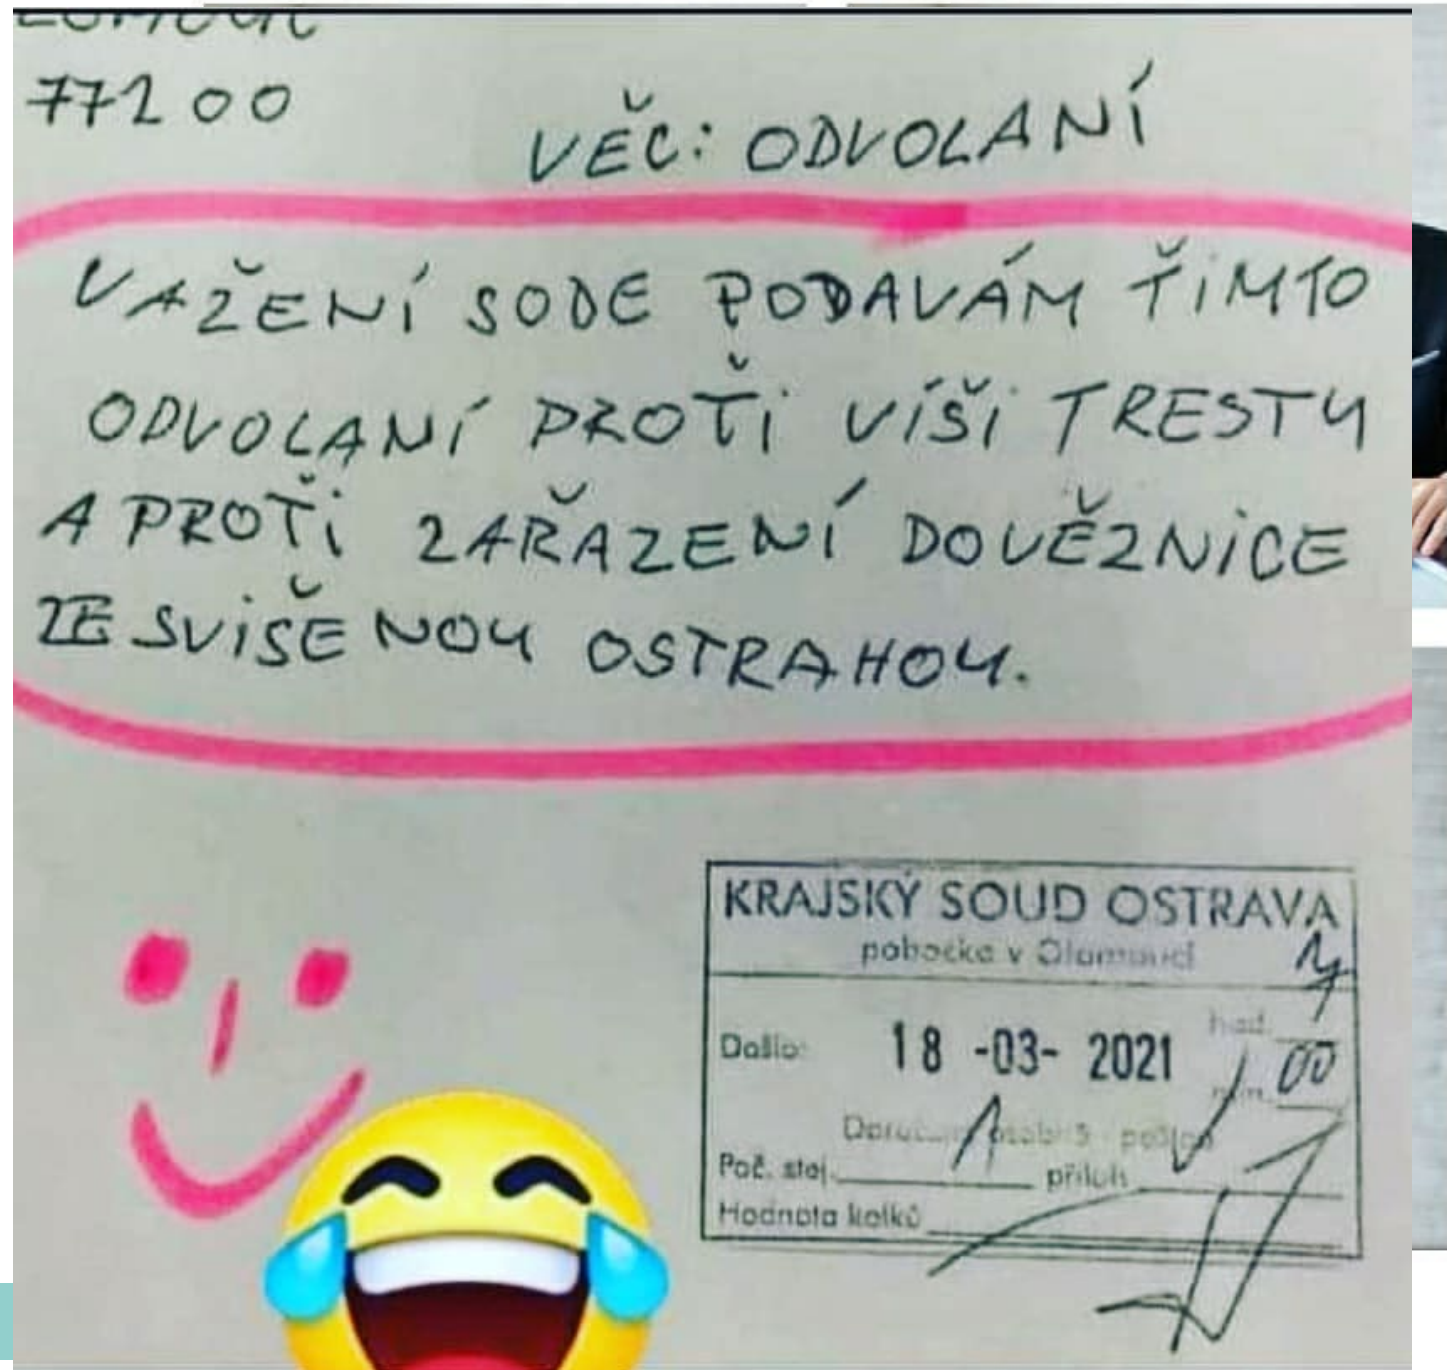 77200
VĚC: ODVOLANÍ
VAŽENÍ SODE PODAVÁM ŤIMTO
ODVOLANÍ PROŤI VÍŠI TRESTU
A PROŤI ZAŘAZENÍ DOVĚZNICE
ZE SVIŠENOU OSTRAHOU.
KRAJSKÝ SOUD OSTRAVA
pobočka v Olomouci
Došlo: 18 -03- 2021 hod.
00
Poč. stej. 1 příloh
Hodnota kolků